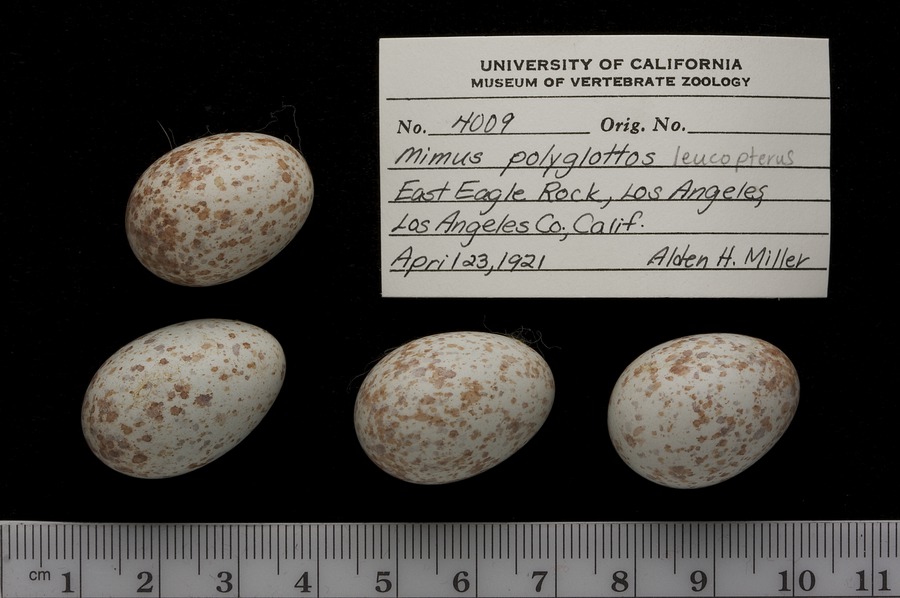 UNIVERSITY OF CALIFORNIA
MUSEUM OF VERTEBRATE ZOOLOGY
No. 4009 Orig. No.
Mimus polyglottos leucopterus
East Eagle Rock, Los Angeles,
Los Angeles Co., Calif.
April 23, 1921 Alden H. Miller
cm 1 2 3 4 5 6 7 8 9 10 11